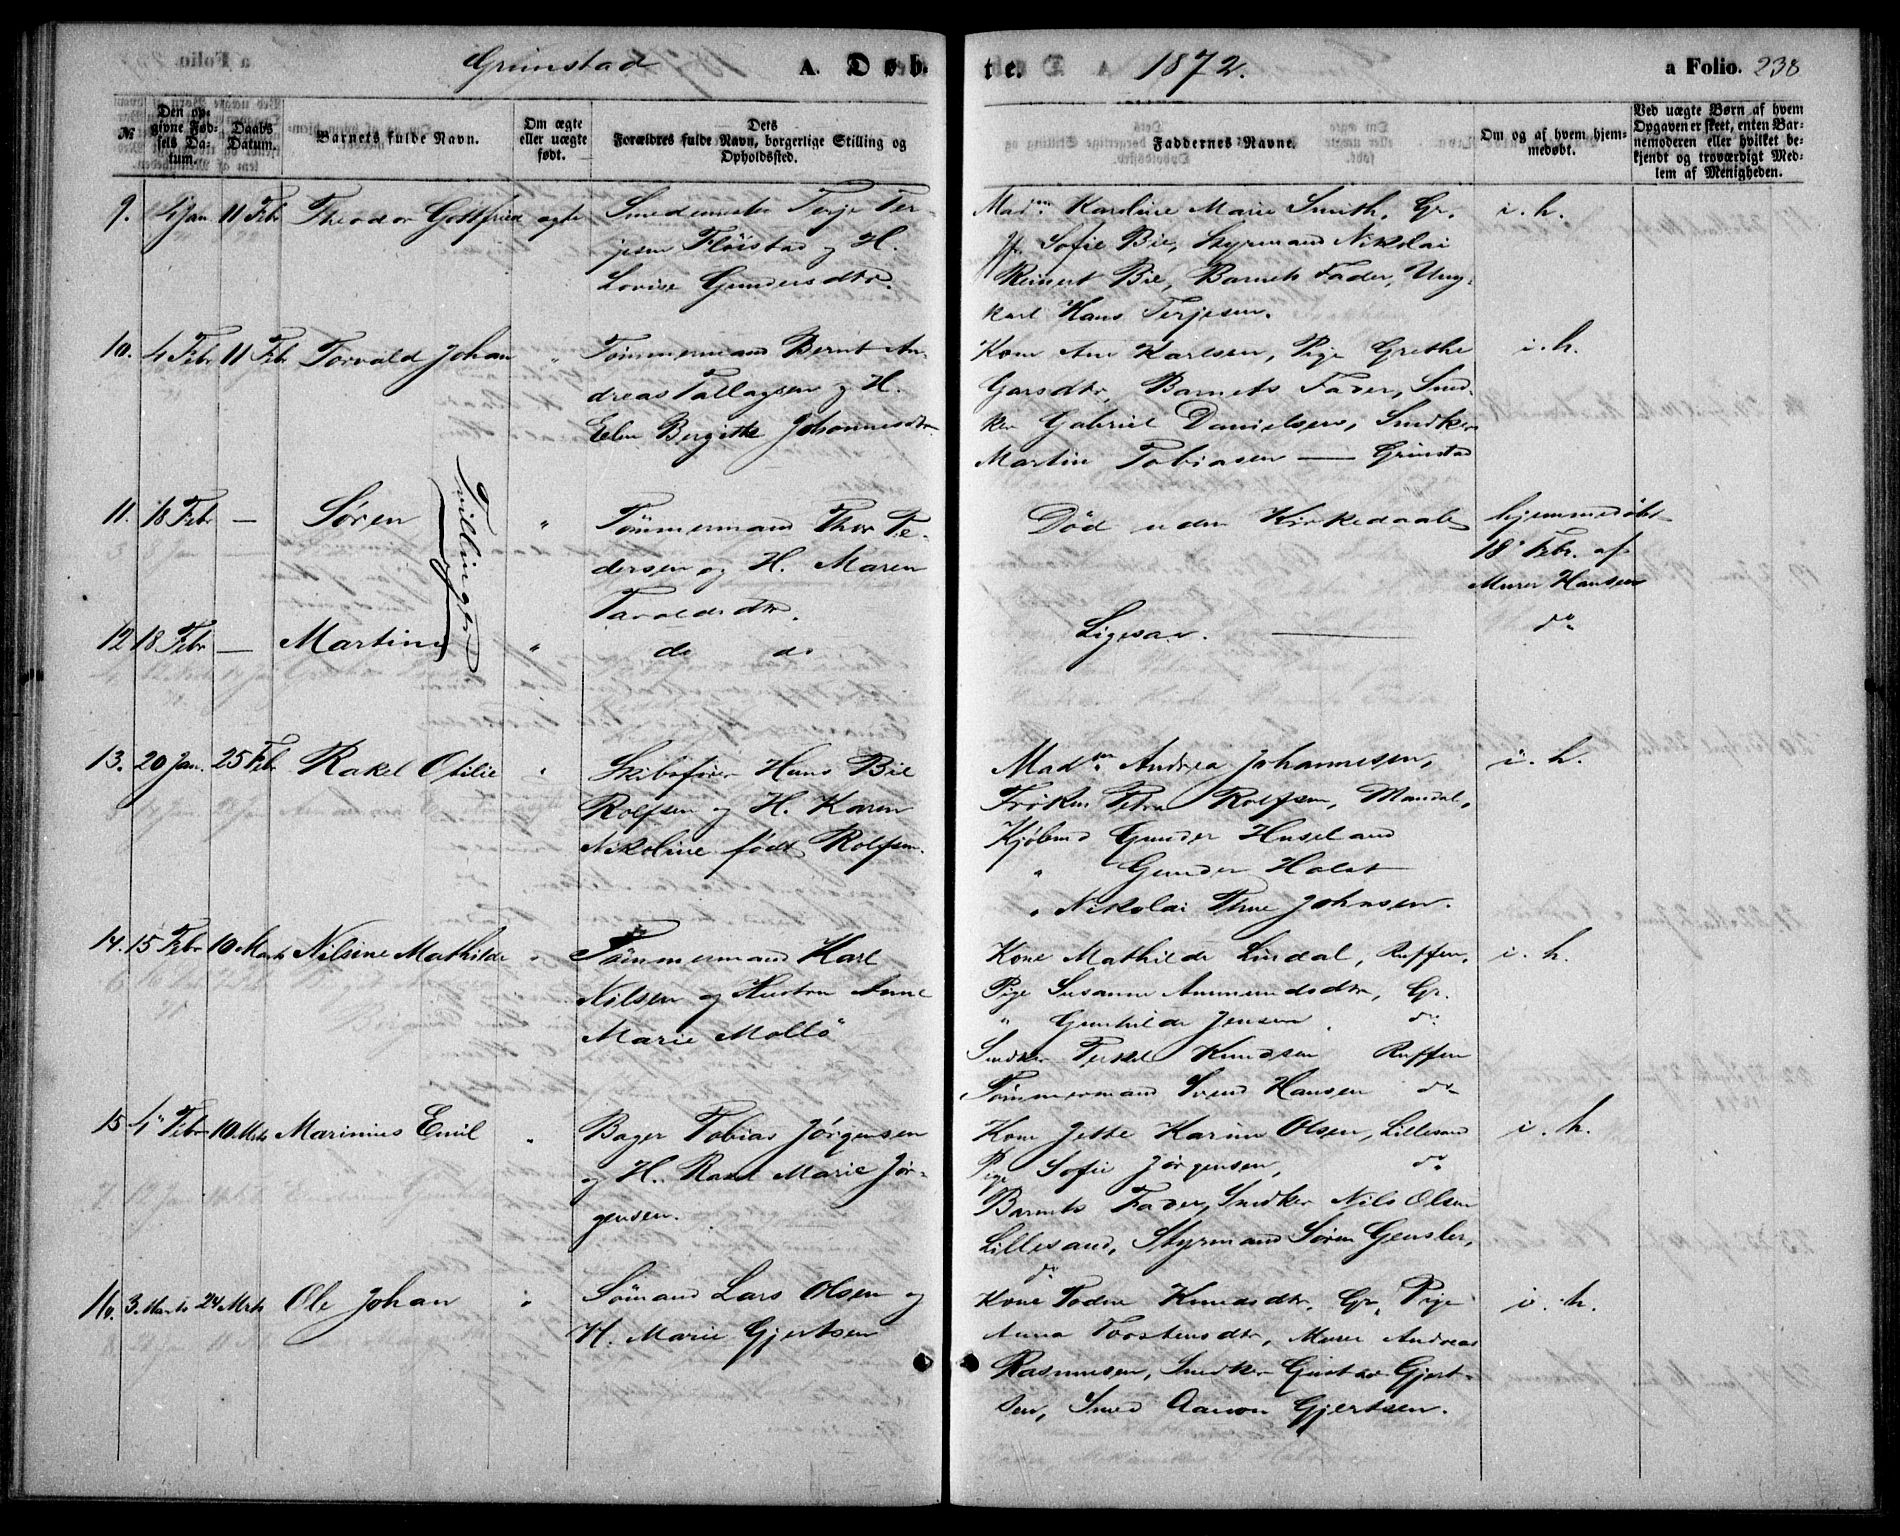 Grimstad A. Døbte. 1872. a Folio. 238
№
Den opgivne Fødsels Datum.
Daabs Datum.
Barnets fulde Navn.
Om ægte eller uægte født.
Dets Forældres fulde Navn, borgerlige Stilling og Opholdssted.
Faddernes Navne.
Om og af hvem hjemmedøbt.
Ved uægte Børn af hvem Opgaven er skeet, enten Barnemoderen eller hvilket bekjendt og troværdigt Medlem af Menigheden.
9. 4 Jan 11 Febr Theodor Gottfried ægte
Smedemester Terje Ter-
jesen Fløistad og H.
Lovise Gundersdtr.
Madm. Karoline Marie Smith, Gr.
Jf. Sofie Bie, Styrmand Nikolai
Reinert Bie, Barnets Fader, Ung-
karl Hans Terjesen.
i. h.
10. 4 Febr 11 Febr Torvald Johan "
Tømmermand Bernt An-
dreas Tallagsen og H.
Elen Bergitte Johannesdtr.
Kone Ane Karlsen, Pige Grethe
Garsdtr, Barnets Fader, Sned-
ker Gabriel Danielsen, Snedker
Martin Tobiasen — Grimstad
i. h.
11. 18 Febr — Søren "
Tvillinger
Tømmermand Thor Pe-
dersen og H. Maren
Taraldsdtr.
Død uden Kirkedaab
hjemmedøbt
18 Febr. af
Murer Hansen
12 18 Febr — Martine "
do do
Ligesaa. —
do
13. 20 Jan. 25 Febr Rakel Otilie "
Skibsfører Hans Bie
Rolfsen og H. Karen
Nikoline født Rolfsen.
Madm. Andrea Johannesen,
Frøken Petra Rolfsen, Mandal,
Kjøbmd Gunder Huseland
" Gunder Holst
" Nikolai Thue Johnsen.
i. h.
14. 15 Febr 10 Marts Nilsine Mathilde "
Tømmermand Karl
Nilsen og Hustru Anne
Marie Mollö
Kone Mathilde Lindal, Ruffen,
Pige Susanne Ammundsdtr, Gr.
" Gunhilde Jensen, do
Snedker Terkel Knudsen Ruffen
Tømmermand Svend Hansen do
i. h.
15 4 Febr 10 Mrts Marinius Emil "
Bager Tobias Jørgensen
og H. Rakel Marie Jør-
gensen.
Kone Jette Karine Olsen, Lillesand
Pige Sofie Jørgensen, do
Barnets Fader, Snedker Nils Olsen
Lillesand, Styrmand Søren Gensler,
do
i. h.
16. 3. Marts 24 Mrts Ole Johan "
Sømand Lars Olsen og
H. Marie Gjertsen
Kone Todne Knudsdtr, Gr. Pige
Anna Torstensdtr, Murer Andreas
Rasmusen, Snedker Gustav Gjert-
sen, Smed Aanon Gjertsen.
i. h.